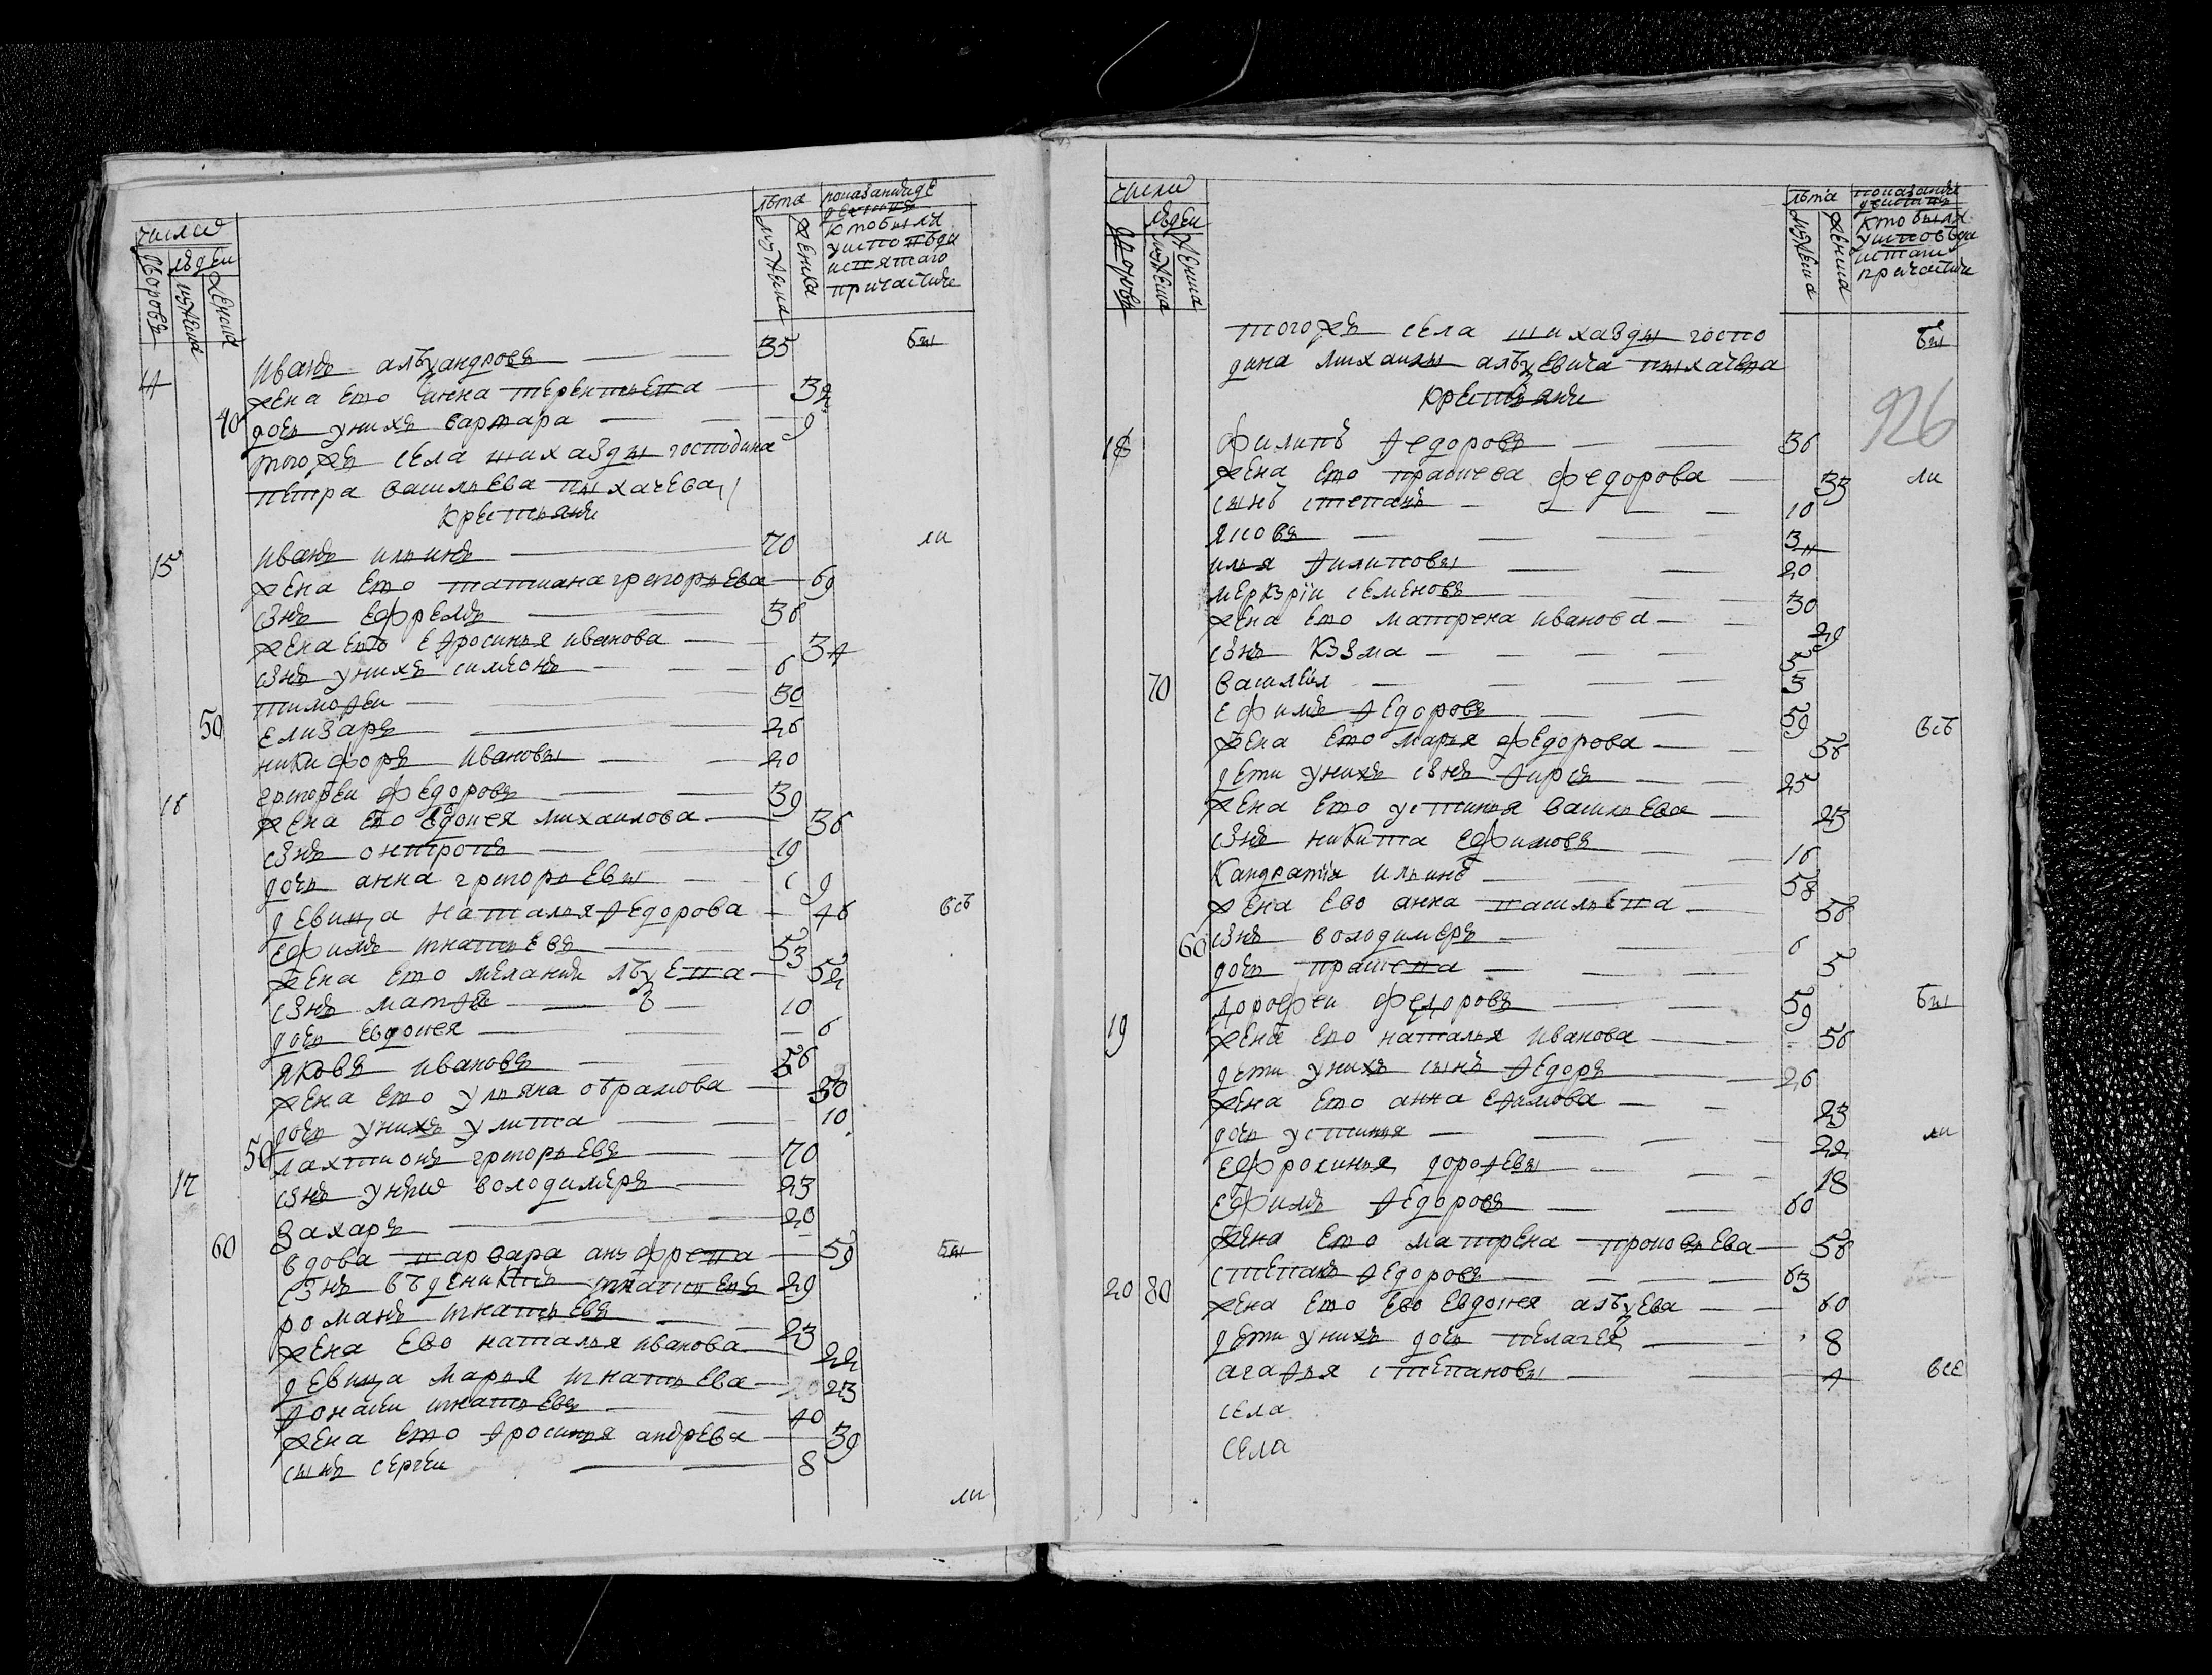 число
людеи
дворовъ
мужеска
женска
лѣта
мужеска
женска
показание
кто были
у исповѣди
и с͠вятаго
причастие
14 Иванъ алѣѯандровъ 35 бы
жена ево анна терентьева 32
40 дочь у нихъ варвара 9
того жъ села шихазды господина
петра васильева пыхачева
крестьяне
15 иванъ ильинъ 70 ли
жена ево татиана григорьева 69
сынъ ефремъ 36
жена ево еѳросинья иванова 34
сынъ у нихъ симионъ 6
тимоѳеи 30
50 елизаръ 26
никифоръ ивановы 20
16 григореи федоровъ 39
жена ево евдокея михаилова 36
сынъ онтропъ 19
дочь анна григорьевы 9
девица наталья ѳедорова 46 всѣ
ефимъ игнатьевъ 53
жена ево мелания лѣѯева 52
сынъ матѳеи 10
дочь евдокея 6
яковъ ивановъ 56
жена ево ульяна обрамова 50
дочь у нихъ улита 10
50 лахтионъ григорьевъ 70
17 сынъ у нево володимеръ 23
60 захаръ 20
вдова варвара анъфрева 59 бы
сынъ въденикътъ игнатьевъ 29
романъ игнатьевъ 23
жена ево наталья иванова 22
девица марья игнатьева 23
аѳонасеи игнатьевъ 40
жена ево ѳросинья андрева 39
сынъ сергеи 8
ли
число
людеи
дворовъ
мужеска
женска
лѣта
мужеска
женска
показание
кто были
у исповѣди
и с͠таго
причастие
того жъ села шихазды госпо бы
дина михаилы алѣѯевича пыхачева
крестьяне
926
18 филипъ ѳедоровъ 36
жена ево прасковя федорова 33 ли
сынъ степанъ 10
яковъ 3
илья ѳилиповы 20
меркурїи семеновъ 30
жена ево матрена иванова 29
сынъ кузма 5
70 василеи 3
ефимъ ѳедоровъ 59
жена ево марья федорова 56 всѣ
дети у нихъ сынъ ѳирсъ 25
жена ево устинья васильева 23
сынъ никита ефимовъ 16
кандратїи ильинъ 58
жена ево анна васильева 56
60 сынъ володимеръ 6
дочь прасковя 5
дорофеи федоровъ 59 бы
19 жена ево наталья иванова 56
дети у нихъ сынъ ѳедоръ 26
жена ево анна еѳимова 23
дочь устинья 22 ли
ефросинья дороѳевы 18
ефимъ ѳедоровъ 60
жена ево матрена прокопьева 56
степанъ ѳедоровъ 63
20 80 жена ево ево евдокея алѣѯева 60
дети у нихъ дочь пелагея 8
агаѳья степановы 4 все
села
села